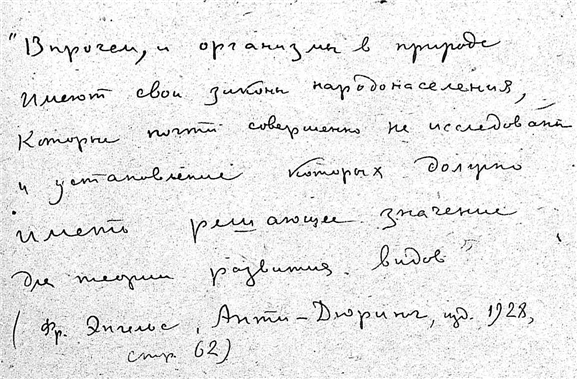 "Впрочем, и организмы в природе
имеют свои законы народонаселения,
которые почти совершенно не исследованы
и установление которых должно
иметь решающее значение
для теории развития видов"
(Фр. Энгельс, Анти-Дюринг, изд. 1928,
стр. 62)